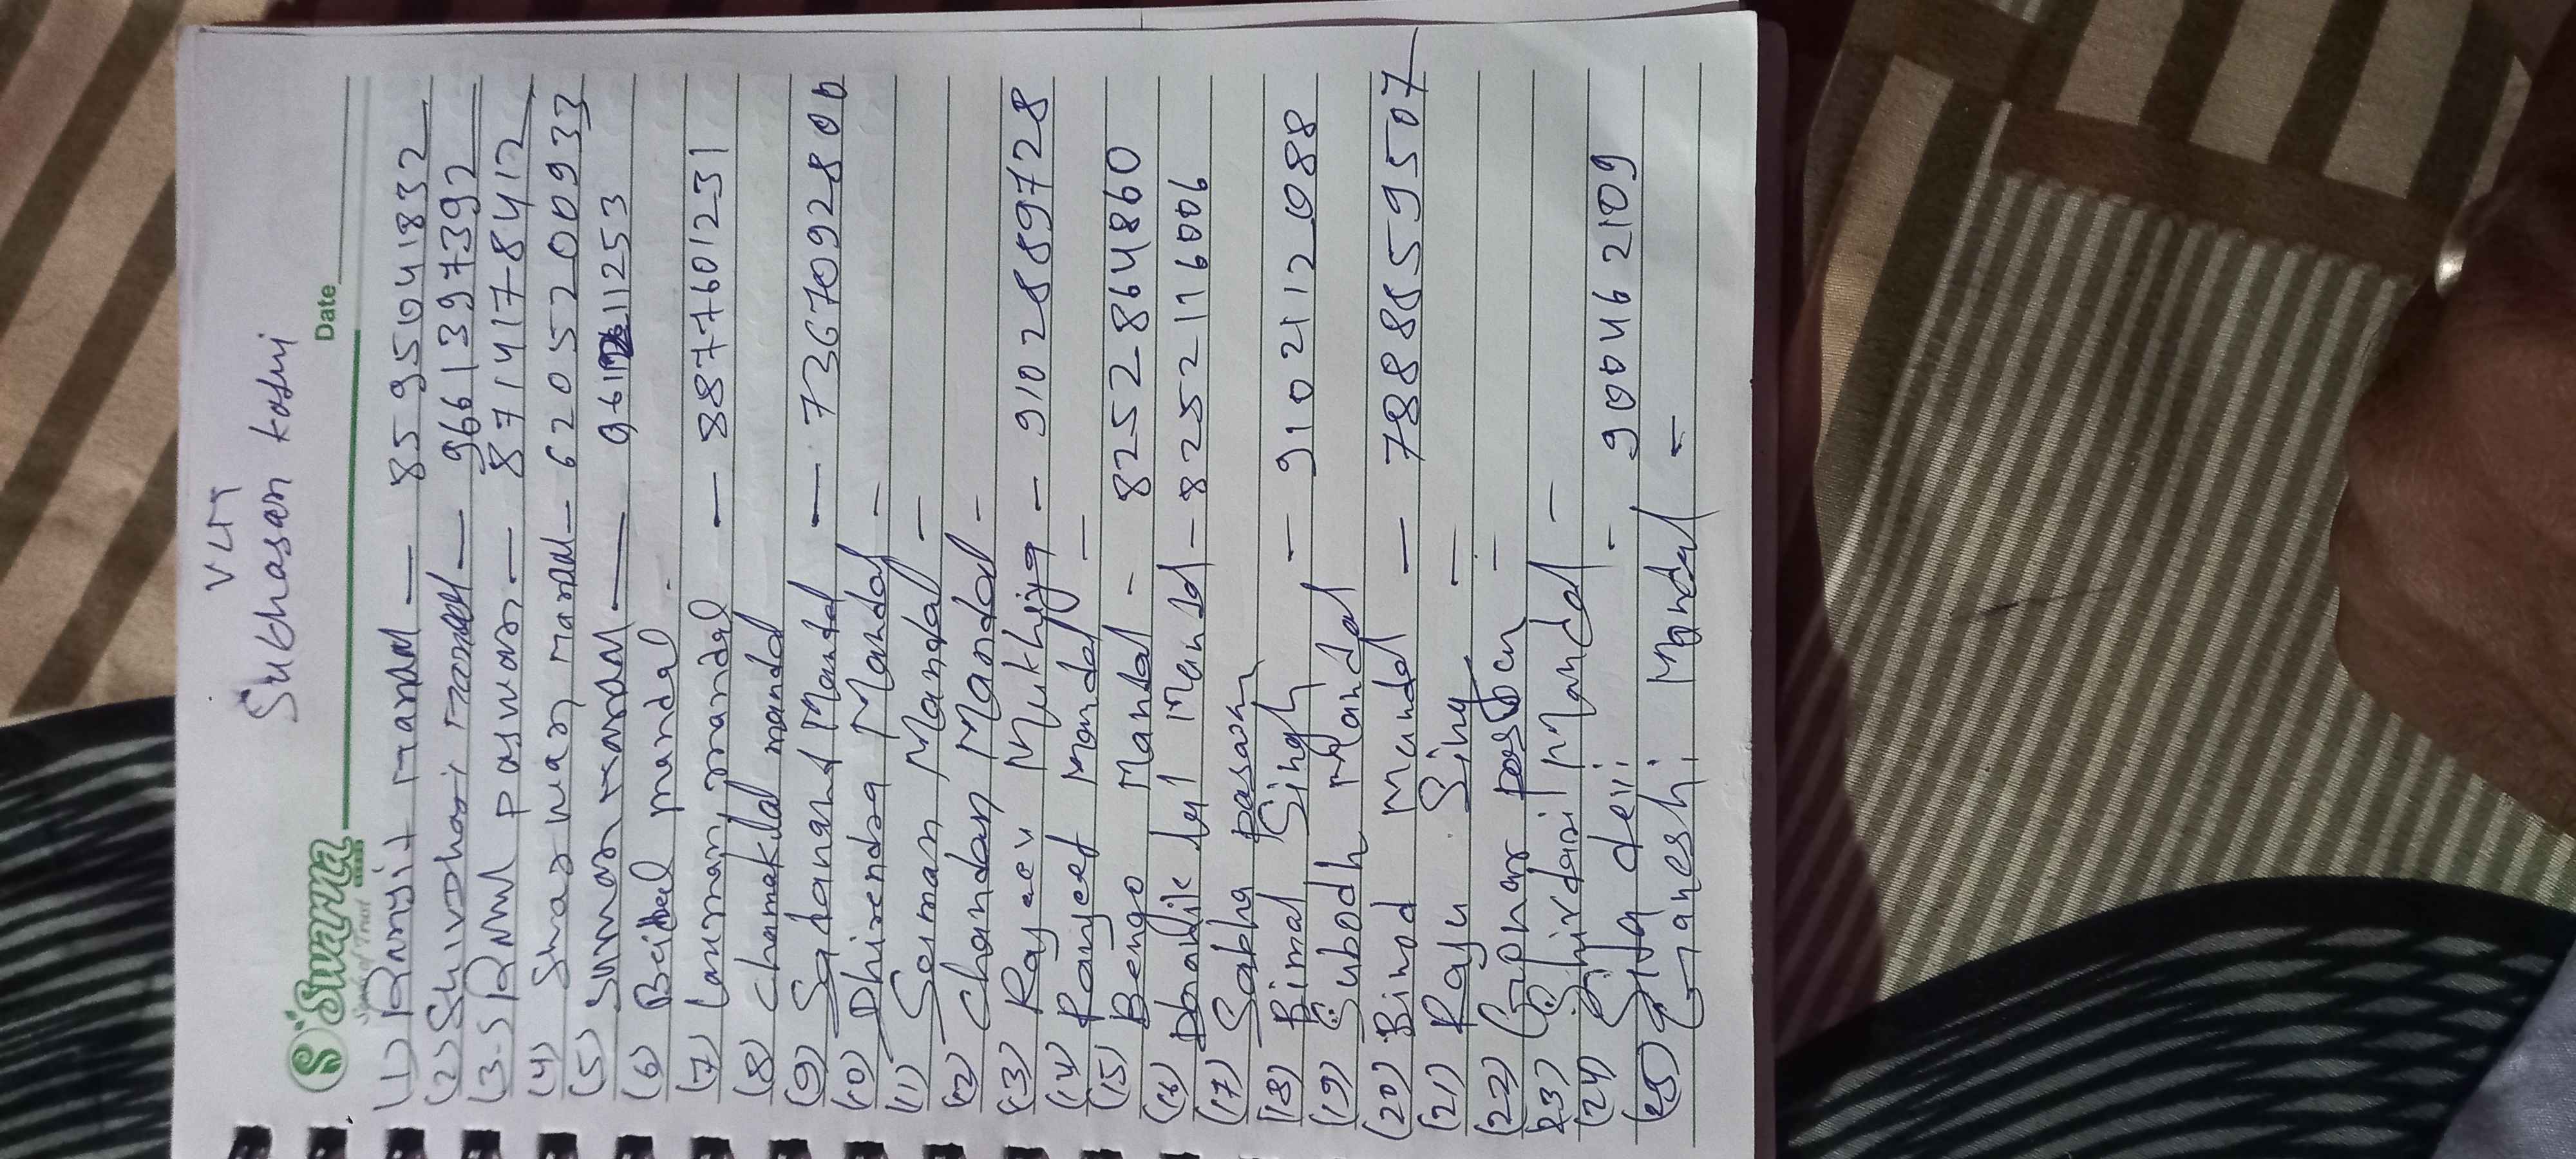 VLM
Subhasan kosri
Swarna
Symbol of Trust
Date
(1) Ranjit Mandal — 8595041832
(2) Shivdhari Mandal — 9661397392
(3) Ramu Paswan — 8714178412
(4) Sharwan Mandal — 6205200933
(5) Suman Mandal — 961 11253
(6) mandal
(7) Laxman mandal — 8877601231
(8) Chamaklal mandal
(9) Sadanand Mandal — 7367092800
(10) Dhirendra Mandal —
(11) Soman Mandal —
(12) Chandan Mandal —
(13) Rajeev Mukhiya — 9102889728
(14) Ranjeet Mandal —
(15) Bengo Mandal - 8252864860
(16) lal Mandal — 8252116006
(17) Sakha pasawan
(18) Bimal Singh — 9102112088
(19) Subodh Mandal
(20) Binod Mandal — 7888559507
(21) Raju Sing —
(22)
(23) Mandal —
(24) Sita devi - 9004621109
(25) Ganeshi Mandal —